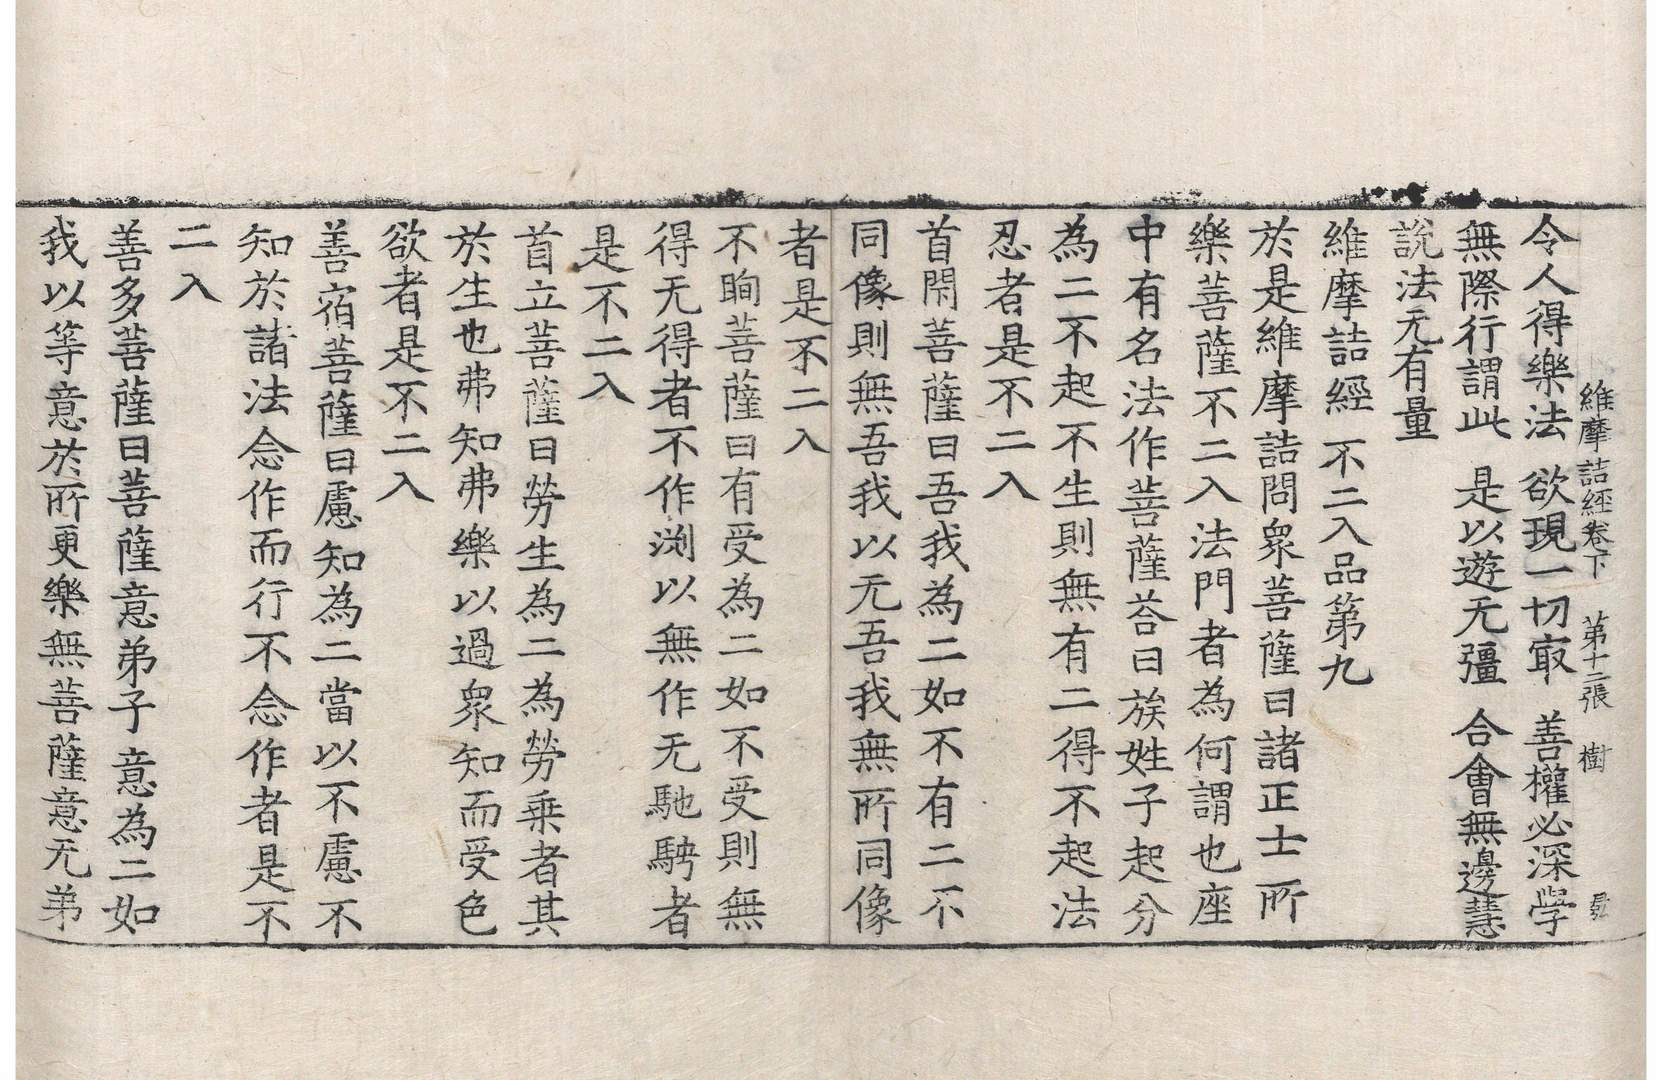 維摩詰經卷下　第十二張　樹
令人得樂法　欲現一切㝡　善權必深學
無際行謂此　是以遊无彊　合會無邊慧
說法无有量
維摩詰經　不二入品第九
於是維摩詰問衆菩薩曰諸正士所
樂菩薩不二入法門者為何謂也座
中有名法作菩薩荅曰族姓子起分
為二不起不生則無有二得不起法
忍者是不二入
首閇菩薩曰吾我為二如不有二不
同像則無吾我以无吾我無所同像
者是不二入
不眴菩薩曰有受為二如不受則無
得无得者不作渕以無作无馳騁者
是不二入
首立菩薩曰勞生為二為勞乗者其
於生也弗知弗樂以過衆知而受色
欲者是不二入
善宿菩薩曰慮知為二當以不慮不
知於諸法念作而行不念作者是不
二入
善多菩薩曰菩薩意弟子意為二如
我以等意於所更樂無菩薩意无弟